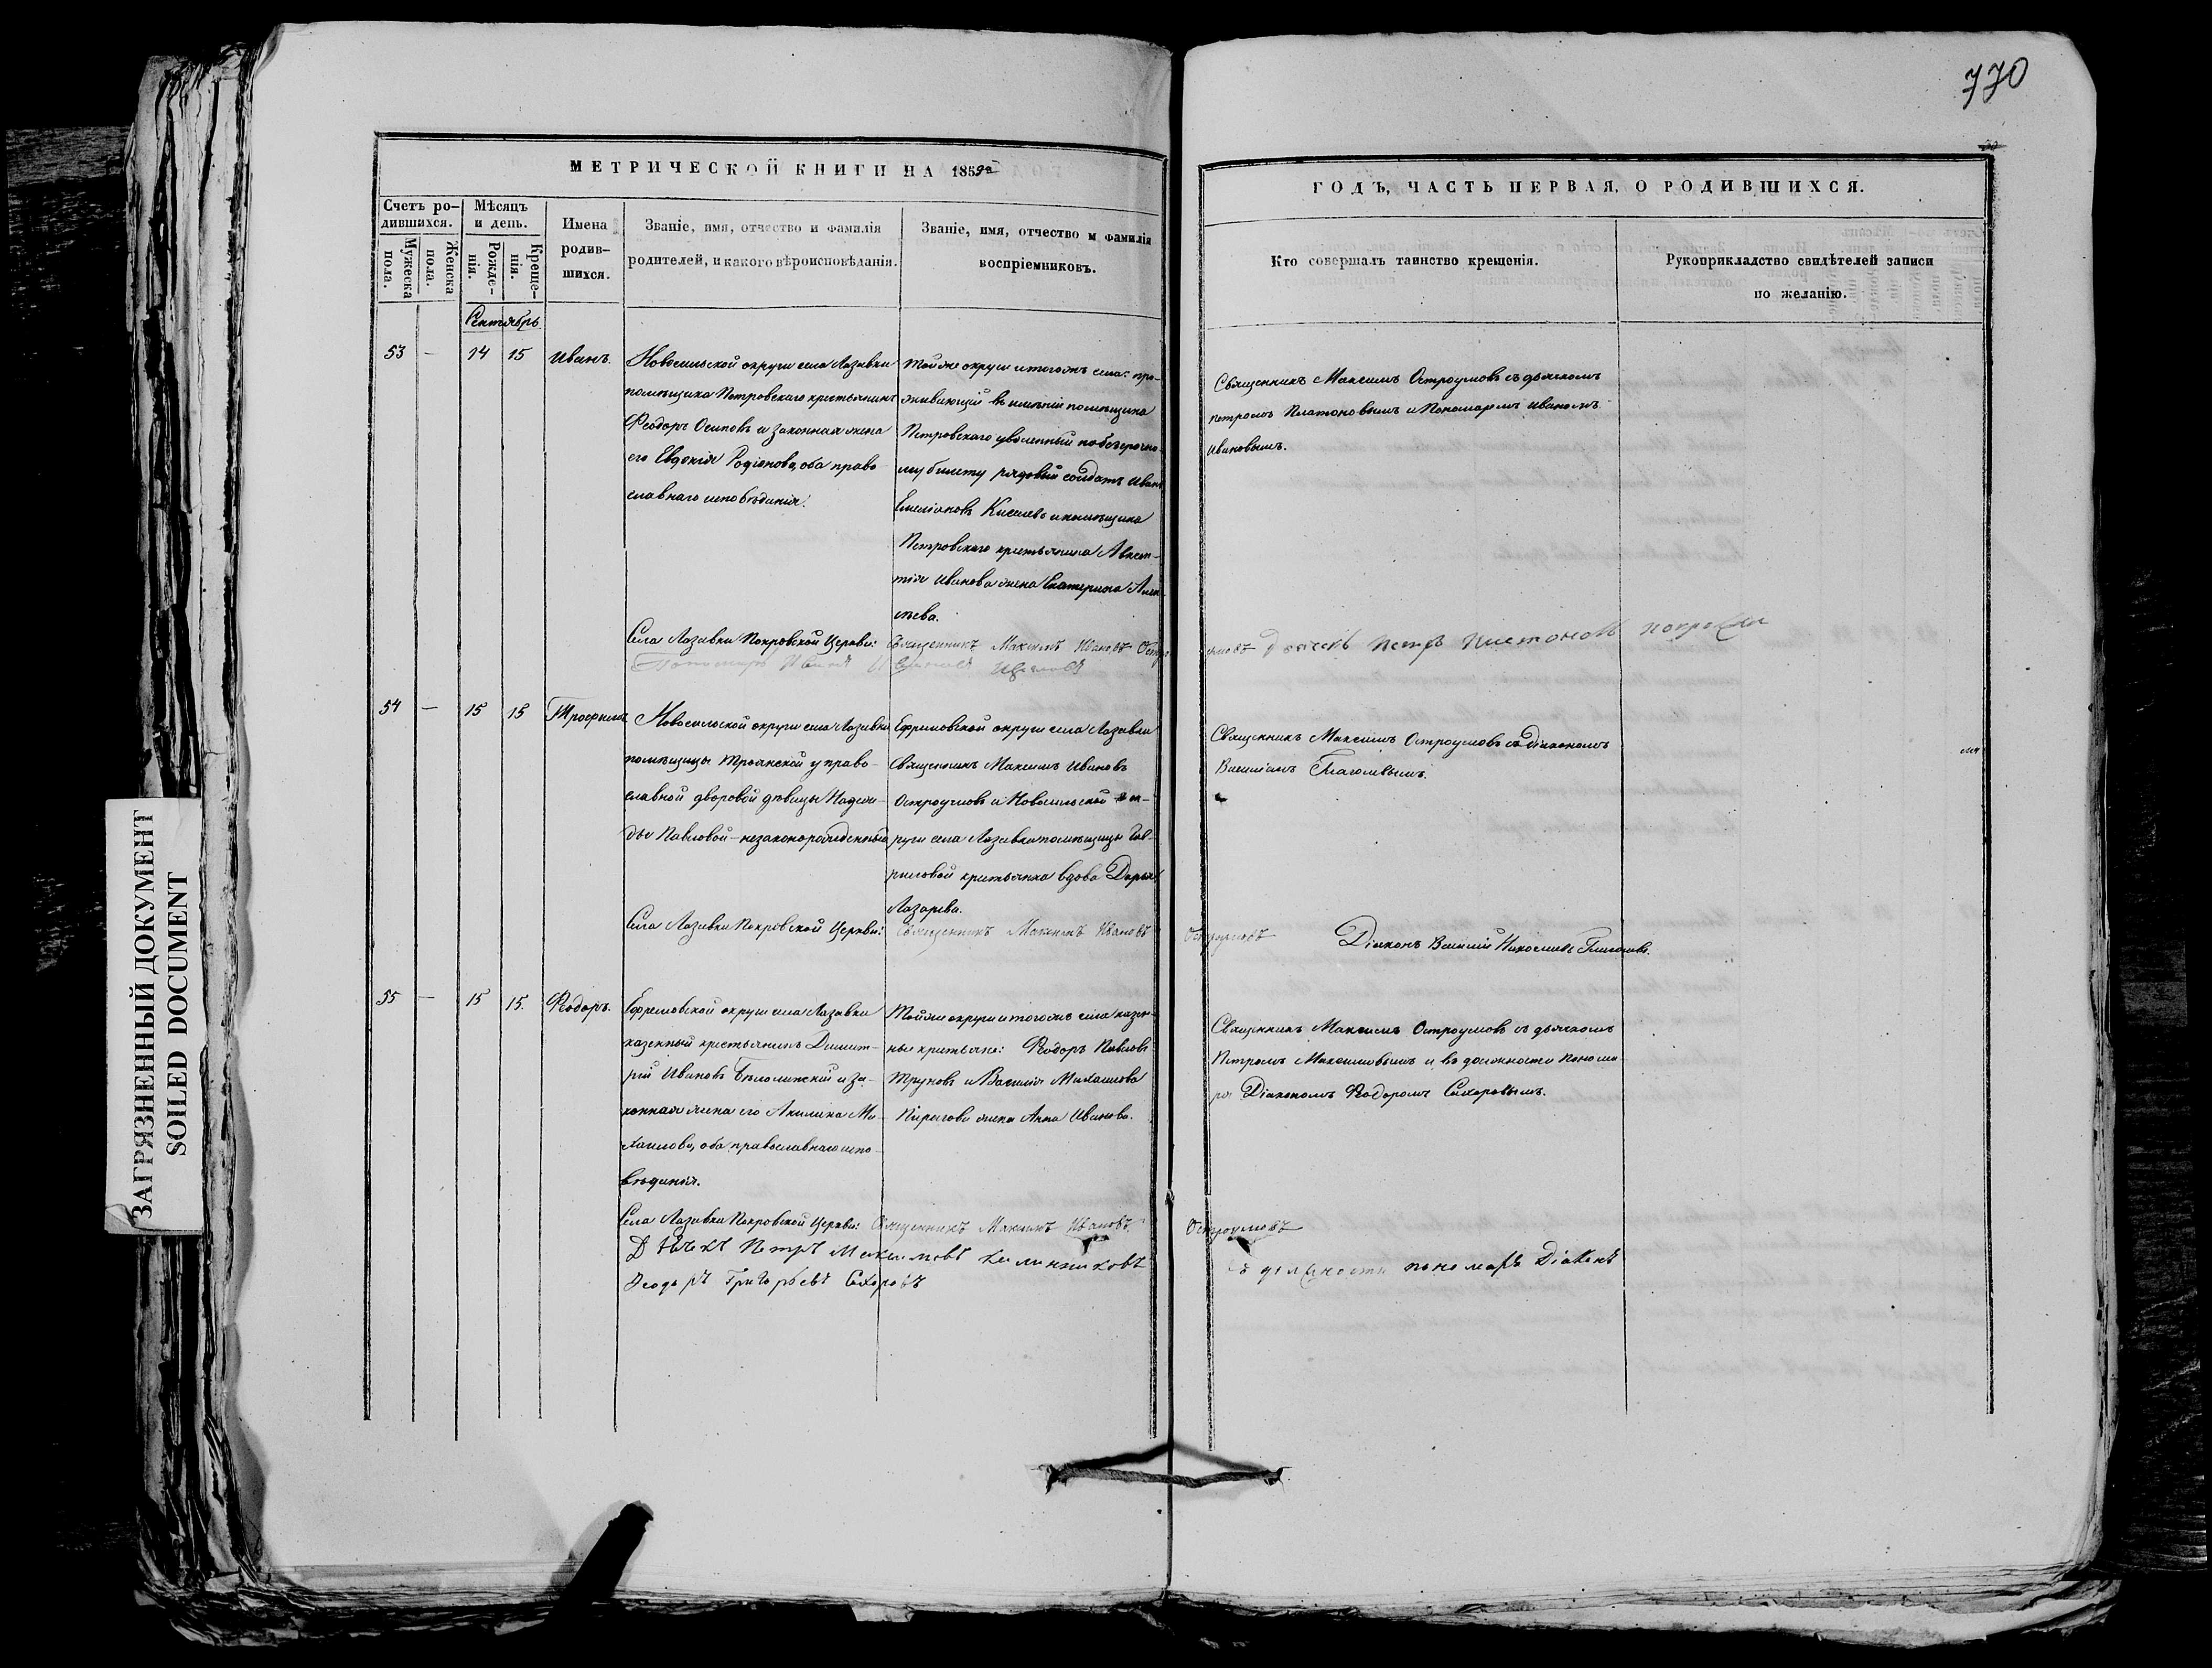 770
МЕТРИЧЕСКОЙ КНИГИ НА 1859й
ГОДЪ, ЧАСТЬ ПЕРВАЯ, О РОДИВШИХСЯ.
Счетъ ро-
дившихся.
Мужеска
пола.
Женска
пола.
Мѣсяцъ
и день.
Рожде-
нія.
Креще-
нія.
Имена
родив-
шихся.
Званіе, имя, отчество и фамилія
родителей, и какого вѣроисповѣданія.
Званіе, имя, отчество и фамилія
воспріемниковъ.
Кто совершалъ таинство крещенія.
Рукоприкладство свидѣтелей записи
по желанію.
Сентябрь
53 — 14 15 Иванъ.
Новосильской округи села Лазавки
помѣщика Петровскаго крестьянинъ
Феодоръ Осиповъ и законная жена
его Евдокія Родіонова, оба право-
славнаго исповѣданія.
Той же округи и тогожъ села: про-
живающій въ имѣніи помѣщика
Петровскаго уволенный по безсрочно-
му билету рядовый солдатъ Иванъ
Емеліановъ Киселевъ и помѣщика
Петровскаго крестьянина
Иванова жена Екатерина
Священникъ Максимъ Остроумовъ съ дьячкомъ
Петромъ Платоновымъ и Пономаремъ Иваномъ
Ивановымъ.
Села Лазавки Покровской Церкви: Священникъ Максимъ Ивановъ Остро-
умовъ Дьячекъ Петръ
Пономарь Иванъ
54 — 15 15 Трофимъ
Новосильской округи села Лазавки
помѣщицы у право-
славной дворовой дѣвицы Надеж-
ды Павловой – незаконорожденный
Ефремовской округи села Лазавки
Священникъ Максимъ Ивановъ
Остроумовъ и Новосильской ок-
руги села Лазавки помѣщицы Гав-
риловой крестьянка вдова Дарья
Лазарева.
Священникъ Максимъ Остроумовъ съ Діакономъ
Василіемъ Глаголевымъ.
Села Лазавки Покровской Церкви: Священникъ Максимъ Ивановъ
Остроумовъ Діаконъ Василій Глаголевъ.
55 — 15 15. Феодоръ.
Ефремовской округи села Лазавки
казенный крестьянинъ Димит-
рій Ивановъ и за-
конная жена его Акилина Ми-
хаилова, оба православнаго испо-
вѣданія.
Той же округи и тогожъ села казен-
ные крестьяне: Феодоръ Павловъ
Труновъ и Василія Михаилова
Пирогова жена Анна Иванова.
Священникъ Максимъ Остроумовъ съ дьячкомъ
Петромъ Максимовымъ и въ должности Понома-
ря Діакономъ Феодоромъ Сахаровымъ.
Села Лазавки Покровской Церкви: Священникъ Максимъ Ивановъ
Остроумовъ
Дьячекъ Петръ Максимовъ Калинниковъ
въ должности пономаря Діаконъ
Феодоръ Григорьевъ Сахоровъ
ЗАГРЯЗНЕННЫЙ ДОКУМЕНТ
SOILED DOCUMENT